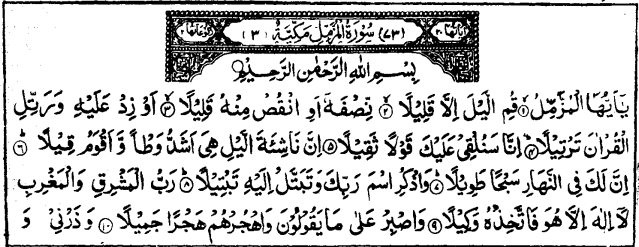 اٰيَاتُهَا ٢٠ (٧٣) سُوْرَةُ الْمُزَّمِّلِ مَكِّيَّةٌ (٣) رُكُوْعَاتُهَا ٢
بِسْمِ اللّٰهِ الرَّحْمٰنِ الرَّحِيْمِ
يٰۤاَيُّهَا الْمُزَّمِّلُ ۙ﴿۱﴾ قُمِ الَّيْلَ اِلَّا قَلِيْلًا ۙ﴿۲﴾ نِّصْفَهٗۤ اَوِ انْقُصْ مِنْهُ قَلِيْلًا ۙ﴿۳﴾ اَوْ زِدْ عَلَيْهِ وَ رَتِّلِ
الْقُرْاٰنَ تَرْتِيْلًا ؕ﴿۴﴾ اِنَّا سَنُلْقِيْ عَلَيْكَ قَوْلًا ثَقِيْلًا ﴿۵﴾ اِنَّ نَاشِئَةَ الَّيْلِ هِيَ اَشَدُّ وَطْاً وَّ اَقْوَمُ قِيْلًا ؕ﴿۶﴾
اِنَّ لَكَ فِي النَّهَارِ سَبْحًا طَوِيْلًا ؕ﴿۷﴾ وَاذْكُرِ اسْمَ رَبِّكَ وَ تَبَتَّلْ اِلَيْهِ تَبْتِيْلًا ؕ﴿۸﴾ رَبُّ الْمَشْرِقِ وَ الْمَغْرِبِ
لَاۤ اِلٰهَ اِلَّا هُوَ فَاتَّخِذْهُ وَكِيْلًا ﴿۹﴾ وَاصْبِرْ عَلٰى مَا يَقُوْلُوْنَ وَاهْجُرْهُمْ هَجْرًا جَمِيْلًا ﴿۱۰﴾ وَ ذَرْنِيْ وَ